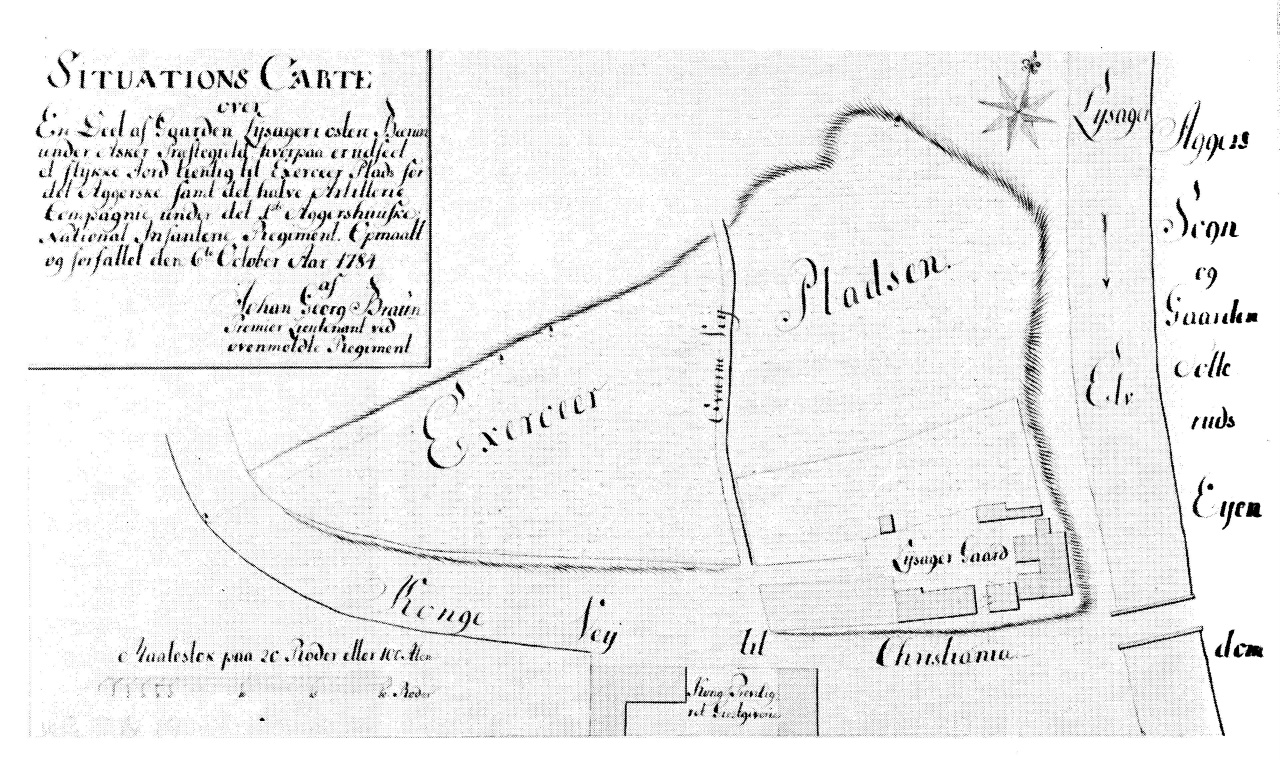 SITUATIONS CARTE
over
En Deel af Gaarden Lysager i østere Bærum
under Asker Præstegield, hvorpaa er udseet
et stykke Jord tienlig til Exerceer Plads for
det Aggerske samt det halve Artillerie
Compagnie under det 1te Aggershuuske
National Infanterie Regiment. Opmaalt
og forfattet den 6te October Aar 1784
af
Johan Georg Braun
Premier Lieutenant ved
ovenmeldte Regiment
Lysager
Elv
Aggers
Sogn
og
Gaarden
ruds
Eyen
dom
Exerceer
Pladsen
Vey
Lysager Gaard
Konge Vey til Christiania
Maalestok paa 20 Roder eller 100 Alen
Roder
Kong